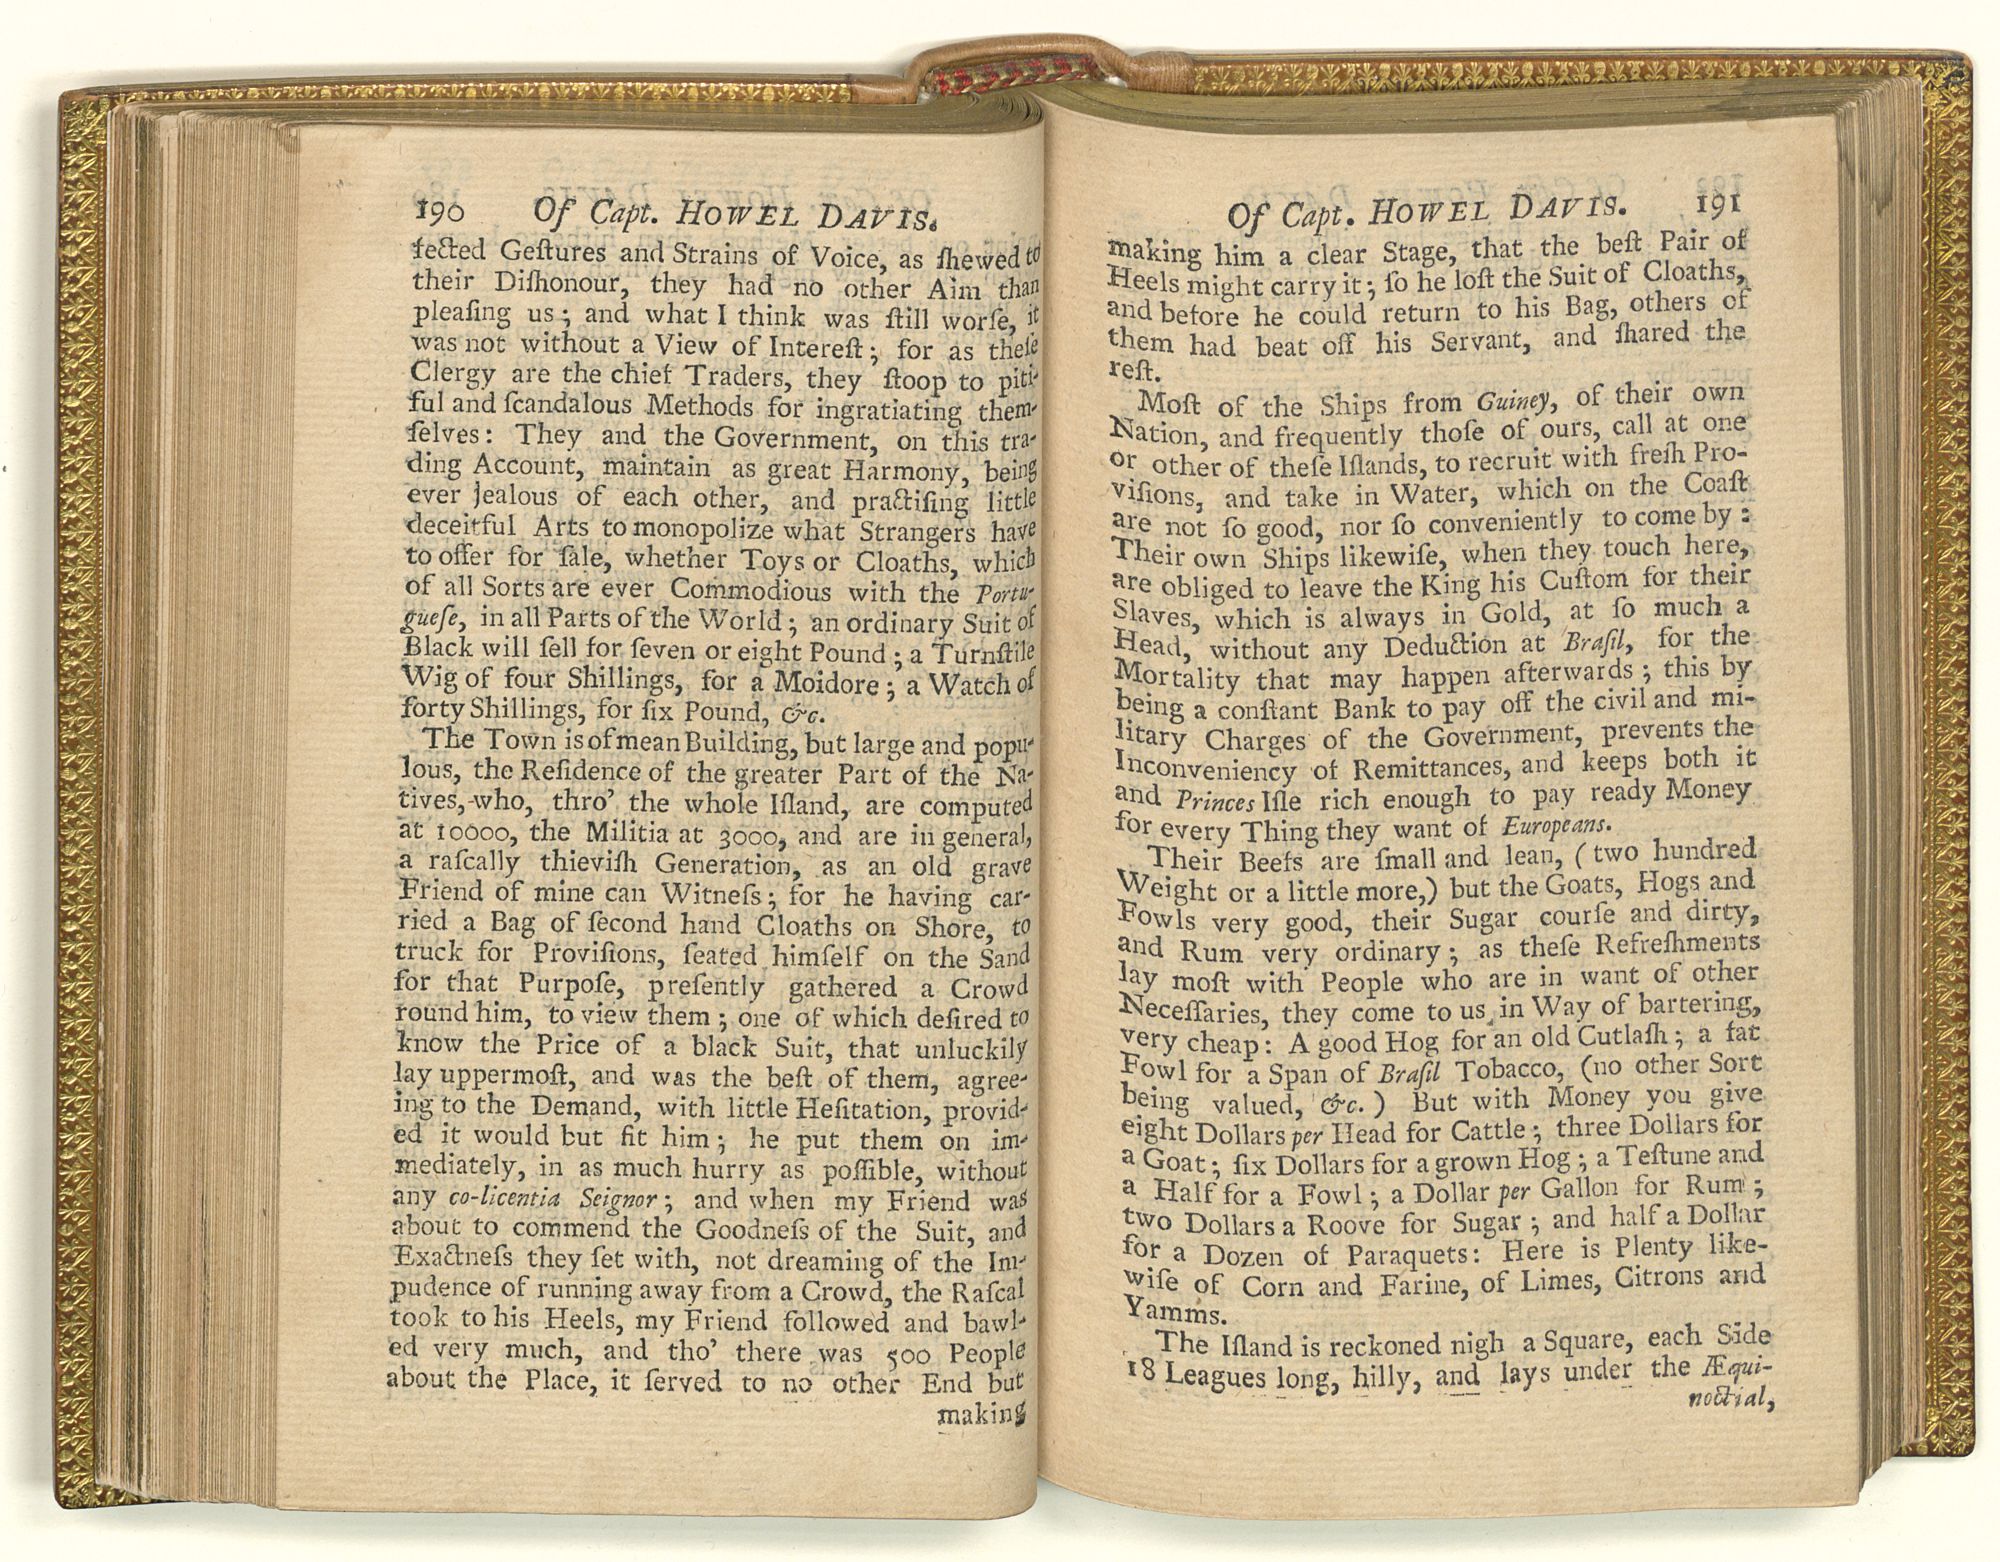 190 Of Capt. HOWEL DAVIS.
fected Geſtures and Strains of Voice, as ſhewed to
their Diſhonour, they had no other Aim than
pleaſing us; and what I think was ſtill worſe, it
was not without a View of Intereſt; for as theſe
Clergy are the chief Traders, they ſtoop to piti-
ful and ſcandalous Methods for ingratiating them-
ſelves: They and the Government, on this tra-
ding Account, maintain as great Harmony, being
ever jealous of each other, and practiſing little
deceitful Arts to monopolize what Strangers have
to offer for ſale, whether Toys or Cloaths, which
of all Sorts are ever Commodious with the Portu-
gueſe, in all Parts of the World; an ordinary Suit of
Black will ſell for ſeven or eight Pound; a Turnſtile
Wig of four Shillings, for a Moidore; a Watch of
forty Shillings, for ſix Pound, &c.
The Town is of mean Building, but large and popu-
lous, the Reſidence of the greater Part of the Na-
tives, who, thro' the whole Iſland, are computed
at 10000, the Militia at 3000, and are in general,
a raſcally thieviſh Generation, as an old grave
Friend of mine can Witneſs; for he having car-
ried a Bag of ſecond hand Cloaths on Shore, to
truck for Proviſions, ſeated himſelf on the Sand
for that Purpoſe, preſently gathered a Crowd
round him, to view them; one of which deſired to
know the Price of a black Suit, that unluckily
lay uppermoſt, and was the beſt of them, agree-
ing to the Demand, with little Heſitation, provid-
ed it would but fit him; he put them on im-
mediately, in as much hurry as poſſible, without
any co-licentia Seignor; and when my Friend was
about to commend the Goodneſs of the Suit, and
Exactneſs they ſet with, not dreaming of the Im-
pudence of running away from a Crowd, the Raſcal
took to his Heels, my Friend followed and bawl-
ed very much, and tho' there was 500 People
about the Place, it ſerved to no other End but
making
Of Capt. HOWEL DAVIS. 191
making him a clear Stage, that the beſt Pair of
Heels might carry it; ſo he loſt the Suit of Cloaths,
and before he could return to his Bag, others of
them had beat off his Servant, and ſhared the
reſt.
Moſt of the Ships from Guiney, of their own
Nation, and frequently thoſe of ours, call at one
or other of theſe Iſlands, to recruit with freſh Pro-
viſions, and take in Water, which on the Coaſt
are not ſo good, nor ſo conveniently to come by:
Their own Ships likewiſe, when they touch here,
are obliged to leave the King his Cuſtom for their
Slaves, which is always in Gold, at ſo much a
Head, without any Deduction at Braſil, for the
Mortality that may happen afterwards; this by
being a conſtant Bank to pay off the civil and mi-
litary Charges of the Government, prevents the
Inconveniency of Remittances, and keeps both it
and Princes Iſle rich enough to pay ready Money
for every Thing they want of Europeans.
Their Beefs are ſmall and lean, (two hundred
Weight or a little more,) but the Goats, Hogs and
Fowls very good, their Sugar courſe and dirty,
and Rum very ordinary; as theſe Refreſhments
lay moſt with People who are in want of other
Neceſſaries, they come to us in Way of bartering,
very cheap: A good Hog for an old Cutlaſh; a fat
Fowl for a Span of Braſil Tobacco, (no other Sort
being valued, &c.) But with Money you give
eight Dollars per Head for Cattle; three Dollars for
a Goat; ſix Dollars for a grown Hog; a Teſtune and
a Half for a Fowl; a Dollar per Gallon for Rum;
two Dollars a Roove for Sugar; and half a Dollar
for a Dozen of Paraquets: Here is Plenty like-
wiſe of Corn and Farine, of Limes, Citrons and
Yamms.
The Iſland is reckoned nigh a Square, each Side
18 Leagues long, hilly, and lays under the Æqui-
noctial,